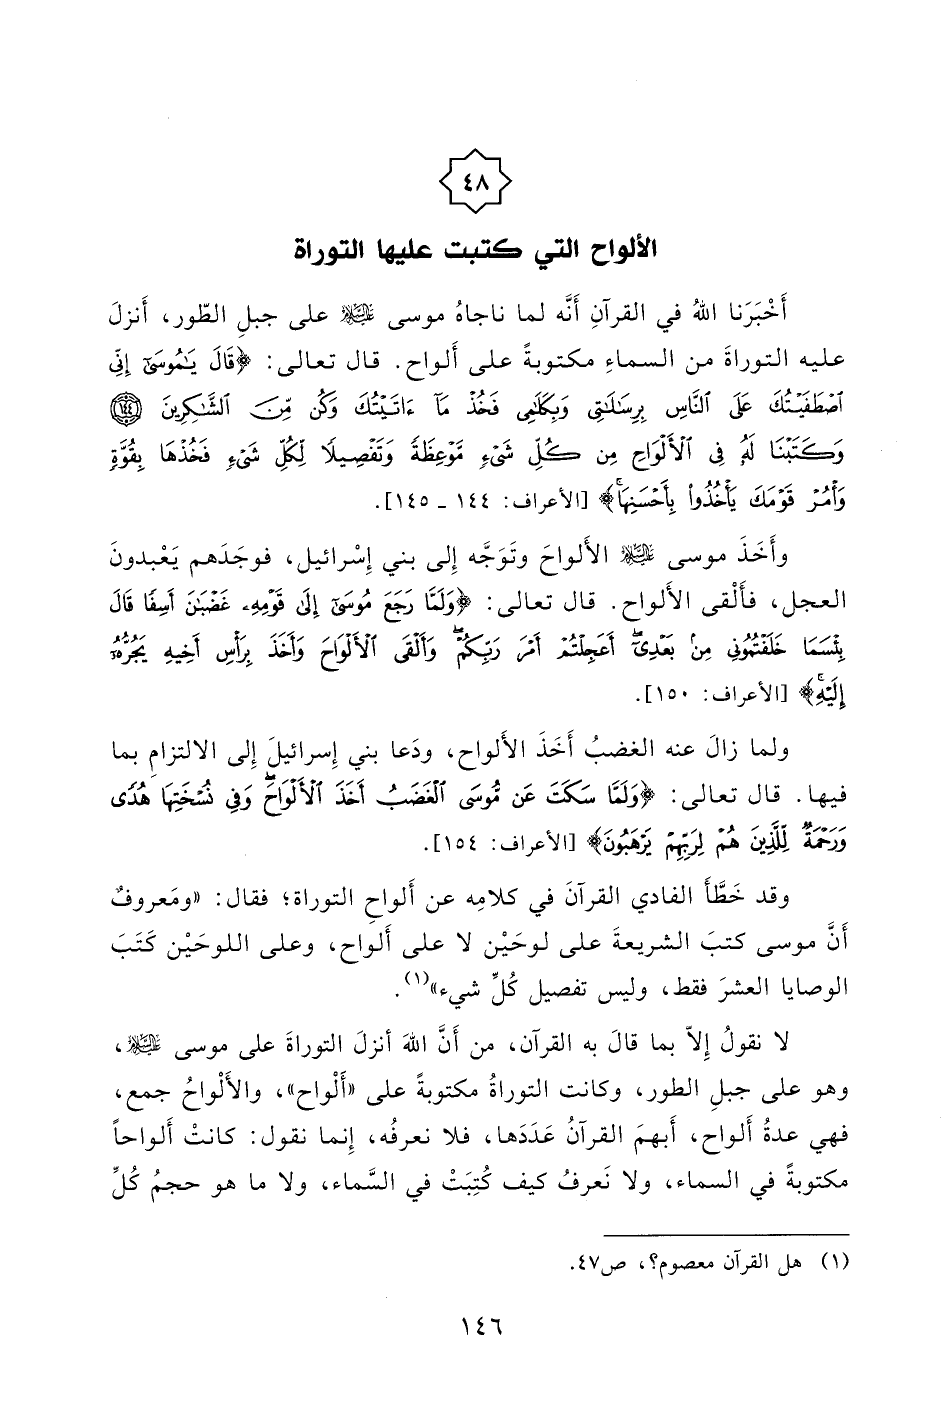 ٤٨
الألواح التي كتبت عليها التوراة
أَخْبَرَنا اللهُ في القرآنِ أَنَّه لما ناجاهُ موسى عليه السلام على جبلِ الطّور، أَنزلَ
عليه التوراةَ من السماءِ مكتوبةً على أَلواح. قال تعالى: ﴿قَالَ يَٰمُوسَىٰٓ إِنِّى
ٱصۡطَفَيۡتُكَ عَلَى ٱلنَّاسِ بِرِسَٰلَٰتِى وَبِكَلَٰمِى فَخُذۡ مَآ ءَاتَيۡتُكَ وَكُن مِّنَ ٱلشَّٰكِرِينَ ١٤٤
وَكَتَبۡنَا لَهُۥ فِى ٱلۡأَلۡوَاحِ مِن كُلِّ شَىۡءٖ مَّوۡعِظَةٗ وَتَفۡصِيلٗا لِّكُلِّ شَىۡءٖ فَخُذۡهَا بِقُوَّةٖ
وَأۡمُرۡ قَوۡمَكَ يَأۡخُذُواْ بِأَحۡسَنِهَاۚ﴾ [الأعراف: ١٤٤ ـ ١٤٥].
وأَخَذَ موسى عليه السلام الأَلواحَ وتَوَجَّه إِلى بني إِسْرائيل، فوجَدَهم يَعْبدونَ
العجل، فأَلْقى الأَلواح. قال تعالى: ﴿وَلَمَّا رَجَعَ مُوسَىٰٓ إِلَىٰ قَوۡمِهِۦ غَضۡبَٰنَ أَسِفٗا قَالَ
بِئۡسَمَا خَلَفۡتُمُونِى مِنۢ بَعۡدِىٓۖ أَعَجِلۡتُمۡ أَمۡرَ رَبِّكُمۡۖ وَأَلۡقَى ٱلۡأَلۡوَاحَ وَأَخَذَ بِرَأۡسِ أَخِيهِ يَجُرُّهُۥٓ
إِلَيۡهِۚ﴾ [الأعراف: ١٥٠].
ولما زالَ عنه الغضبُ أَخَذَ الأَلواح، ودَعا بني إِسرائيلَ إِلى الالتزامِ بما
فيها. قال تعالى: ﴿وَلَمَّا سَكَتَ عَن مُّوسَى ٱلۡغَضَبُ أَخَذَ ٱلۡأَلۡوَاحَۖ وَفِى نُسۡخَتِهَا هُدٗى
وَرَحۡمَةٞ لِّلَّذِينَ هُمۡ لِرَبِّهِمۡ يَرۡهَبُونَ﴾ [الأعراف: ١٥٤].
وقد خَطَّأَ الفادي القرآنَ في كلامِه عن أَلواحِ التوراة؛ فقال: «ومَعروفٌ
أَنَّ موسى كتبَ الشريعةَ على لوحَيْن لا على أَلواح، وعلى اللوحَيْن كَتَبَ
الوصايا العشرَ فقط، وليس تفصيل كُلِّ شيء»(١).
لا نقولُ إِلاّ بما قالَ به القرآن، من أَنَّ اللهَ أنزلَ التوراةَ على موسى عليه السلام،
وهو على جبلِ الطور، وكانت التوراةُ مكتوبةً على «أَلْواح»، والأَلْواحُ جمع،
فهي عدةُ أَلواح، أَبهمَ القرآنُ عَدَدَها، فلا نعرفُه، إِنما نقول: كانتْ أَلواحاً
مكتوبةً في السماء، ولا نَعرفُ كيف كُتِبَتْ في السَّماء، ولا ما هو حجمُ كُلِّ
(١) هل القرآن معصوم؟، ص٤٧.
١٤٦